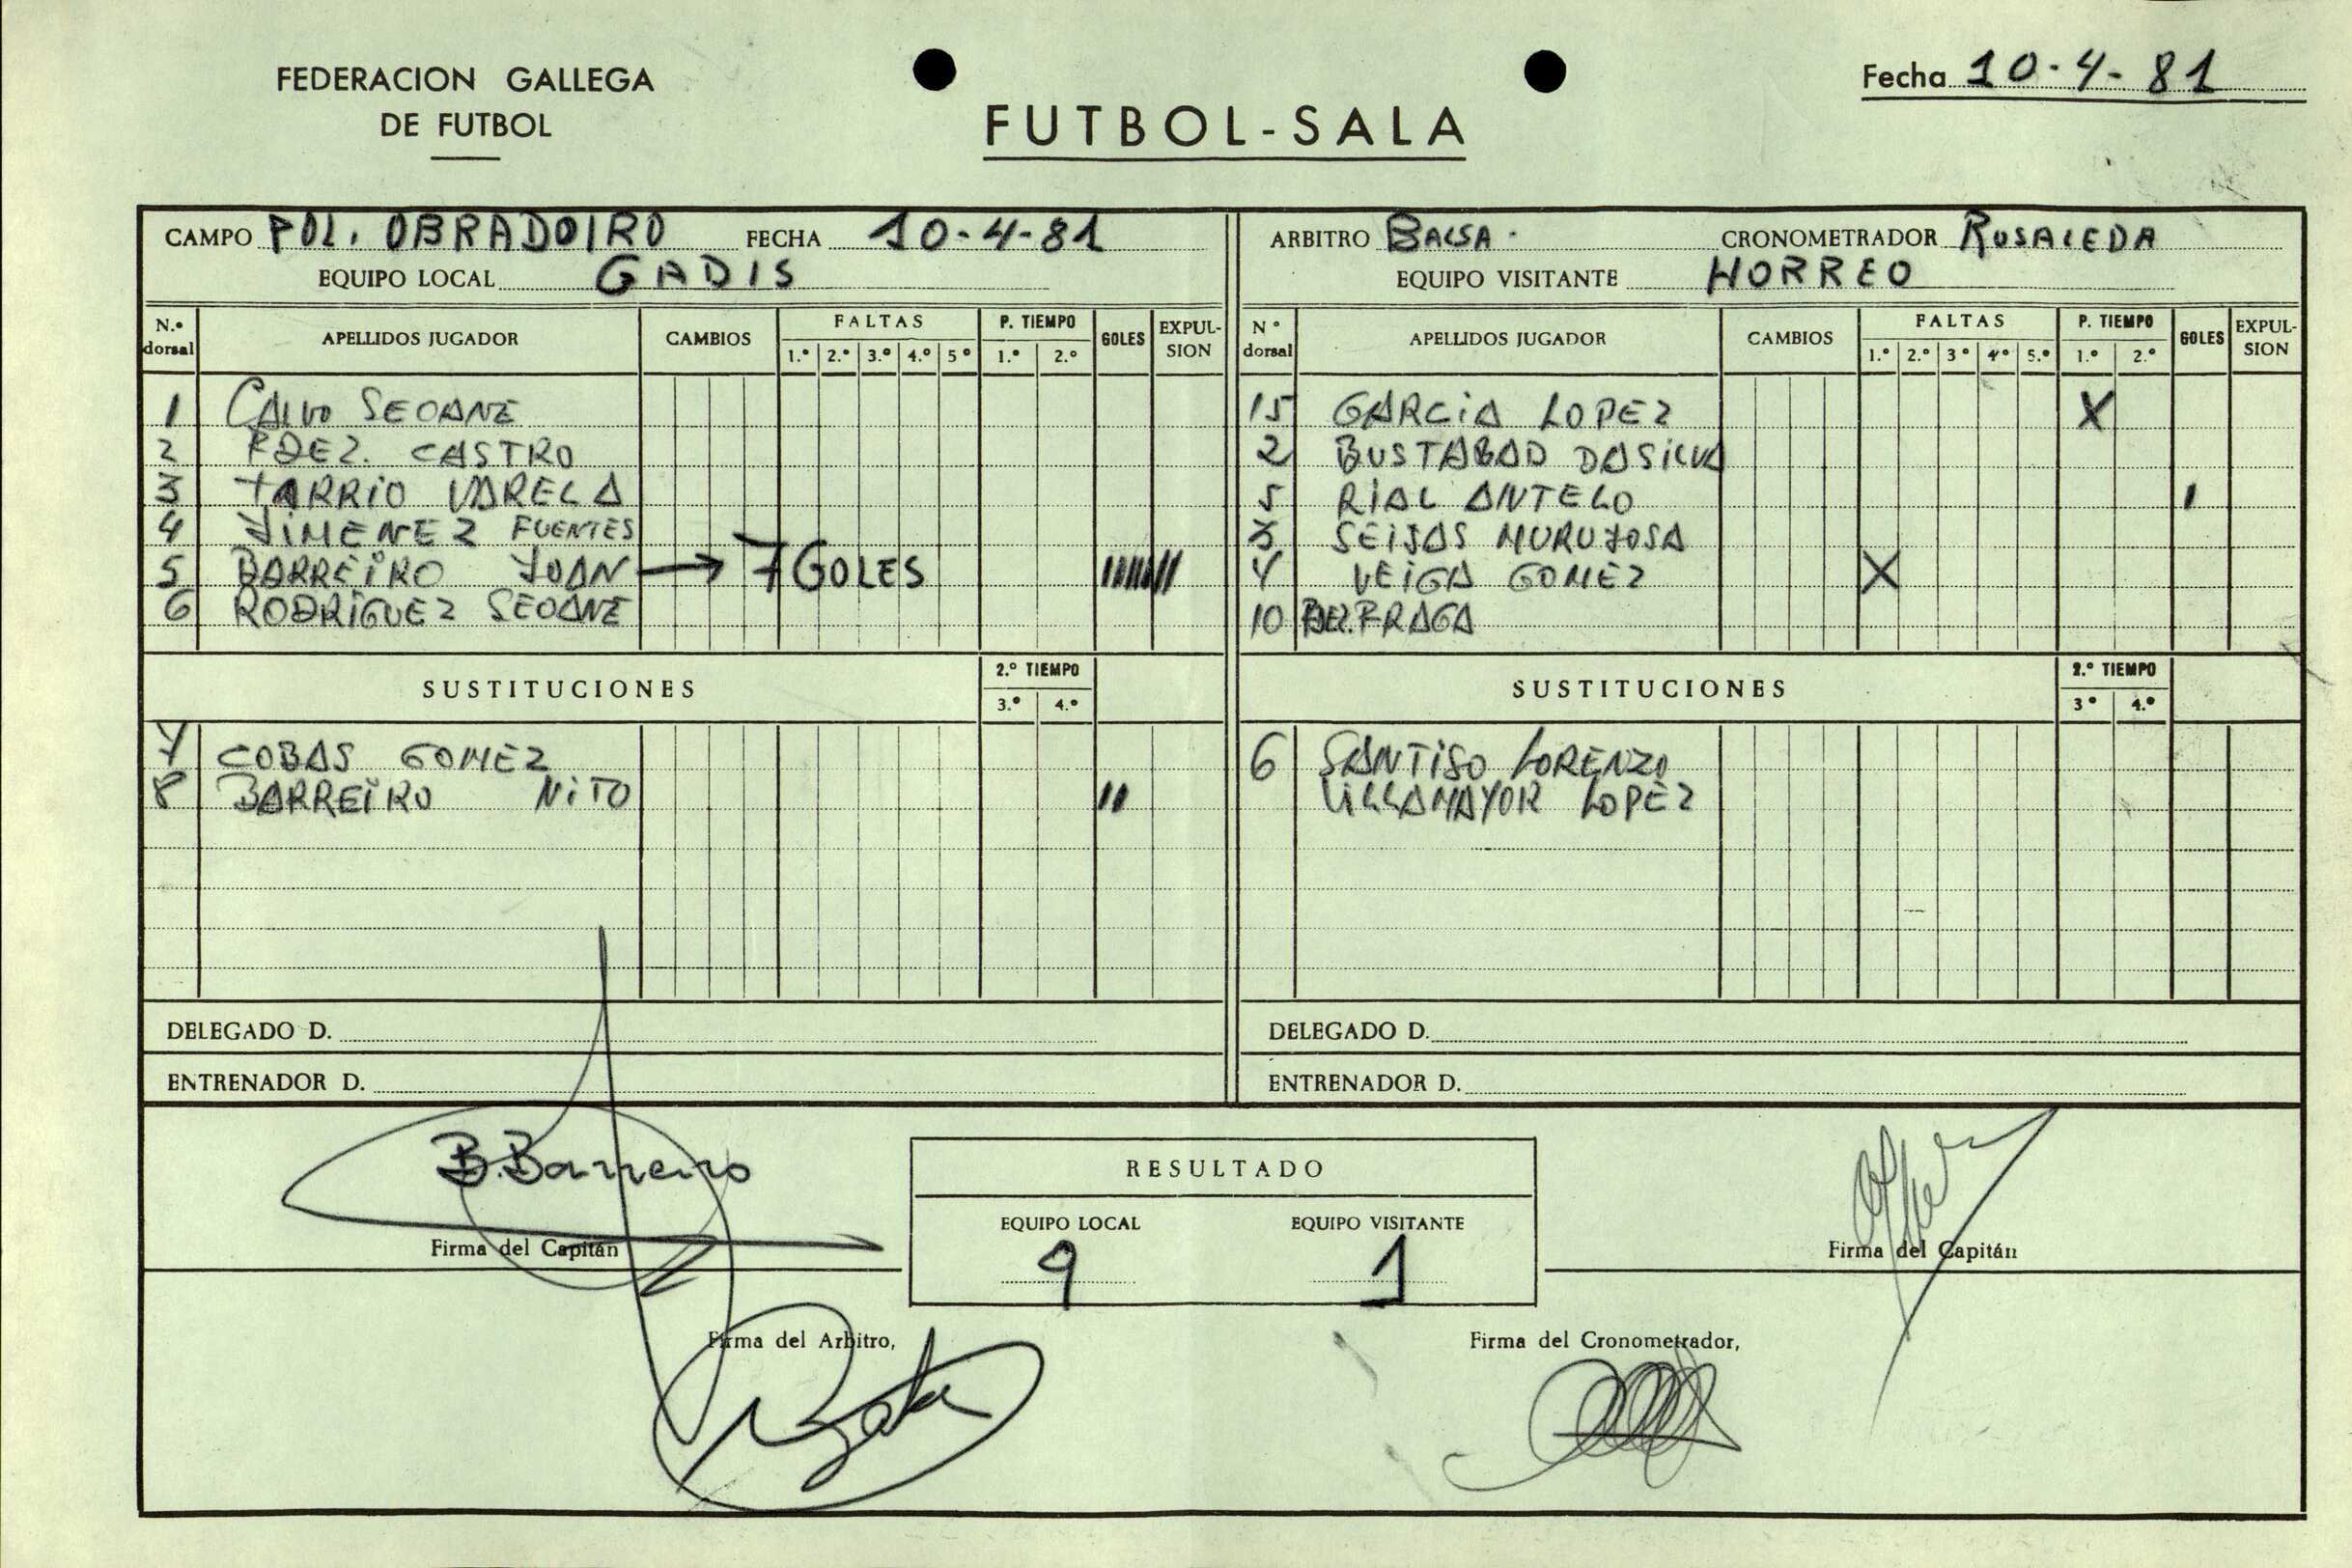 FEDERACION GALLEGA
DE FUTBOL
FUTBOL-SALA
Fecha 10-4-81
CAMPO POL. OBRADOIRO FECHA 10-4-81
EQUIPO LOCAL GADIS
N.º dorsal APELLIDOS JUGADOR CAMBIOS FALTAS 1.º 2.º 3.º 4.º 5º P. TIEMPO 1.º 2.º GOLES EXPULSION
1 CALVO SEOANE
2 FDEZ. CASTRO
3 TARRIO VARELA
4 JIMENEZ FUENTES
5 BARREIRO JUAN → 7 GOLES IIIIIII
6 RODRIGUEZ SEOANE
SUSTITUCIONES 2.º TIEMPO 3.º 4.º
7 COBAS GOMEZ
8 BARREIRO NITO II
DELEGADO D.
ENTRENADOR D.
ARBITRO BALSA. CRONOMETRADOR ROSALEDA
EQUIPO VISITANTE HORREO
Nº dorsal APELLIDOS JUGADOR CAMBIOS FALTAS 1.º 2.º 3º 4º 5.º P. TIEMPO 1.º 2.º GOLES EXPULSION
15 GARCIA LOPEZ X
2 BUSTABAD DASILVA
5 RIAL ANTELO I
3 SEIJAS MURUJOSA
4 VEIGA GOMEZ X
10 FRAGA
SUSTITUCIONES 2.º TIEMPO 3º 4.º
6 SANTISO LORENZO
VILLAMAYOR LOPEZ
DELEGADO D.
ENTRENADOR D.
B. Barreiro
Firma del Capitán
RESULTADO
EQUIPO LOCAL EQUIPO VISITANTE
9 1
Firma del Capitán
Firma del Arbitro,
Firma del Cronometrador,